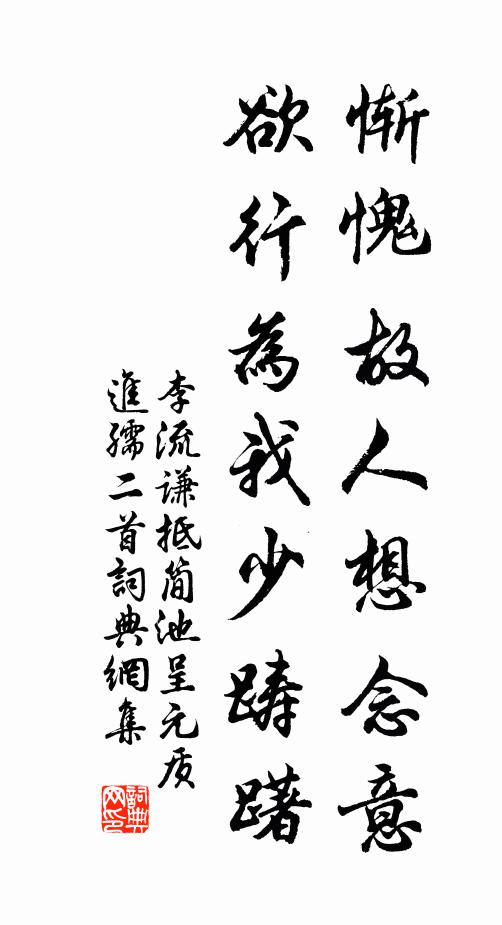 惭愧故人想念意
欲行為我少踌躇
李流谦抵简池呈元质
進孺二首詞典網集
詞典
网印